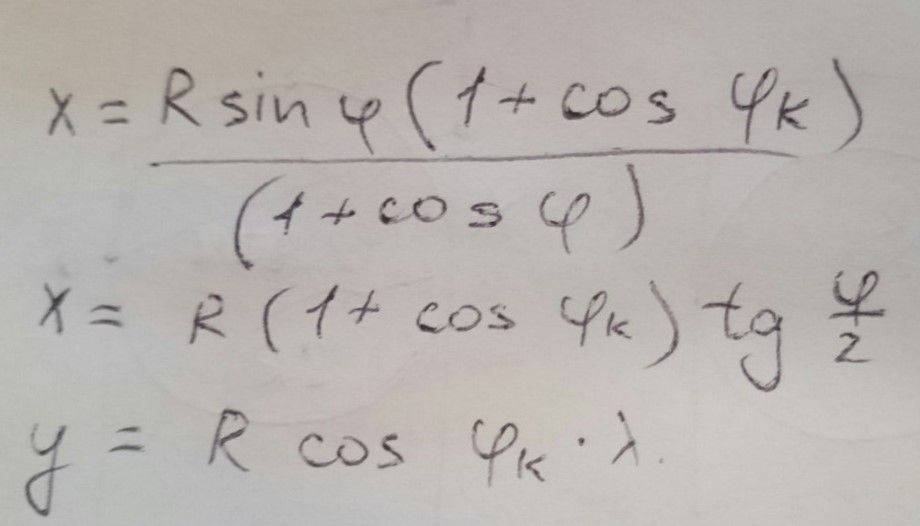 x = R sin φ (1 + cos φк)
(1 + cos φ)
x = R (1 + cos φк) tg φ/2
y = R cos φк · λ.